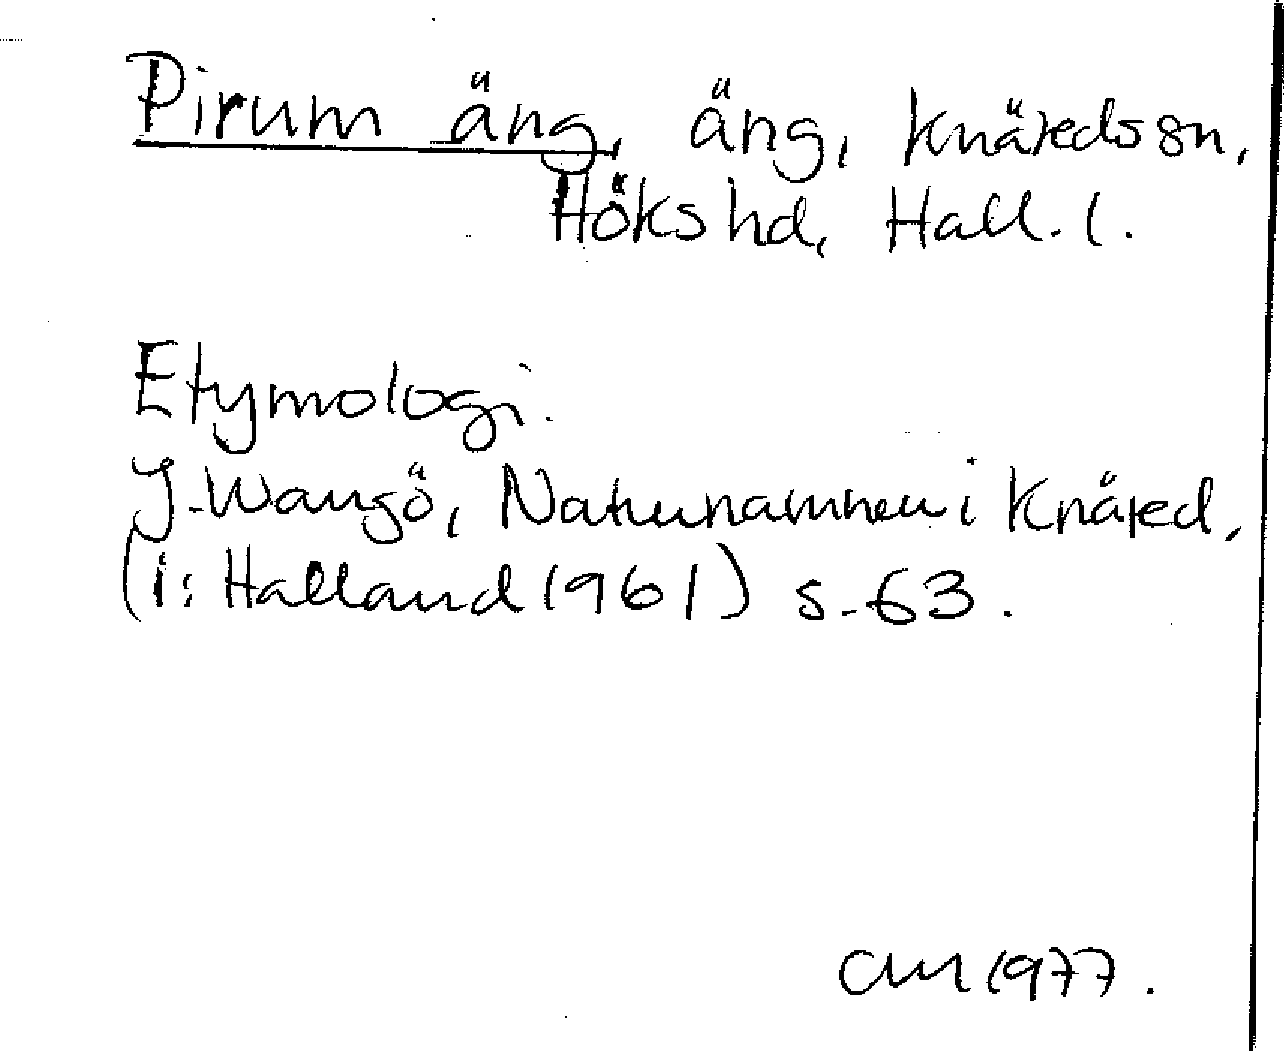 Pirum äng, äng, Knäreds sn,
Höks hd, Hall. l.
Etymologi.
J. Wangö, Naturnamnen i Knäred,
(i: Halland 1961) s. 63.
CM 1977.